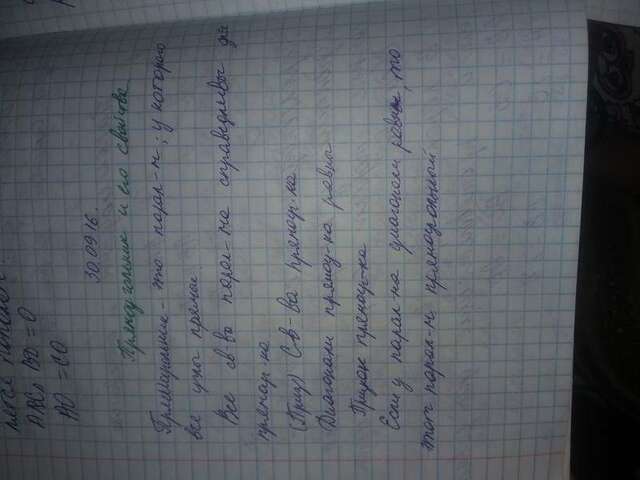 AC ∩ BD = O
AO = CO
30.09.16.
Прямоугольник и его свойства
Прямоугольник - это парал-м, у которого
все углы прямые.
Все св-ва парал-ма справедливы для
прямоуг-ка
Св-ва прямоуг-ка
Диагонали прямоу-ка равны
Признак прямоуг-ка
Если у парал-ма диагонали равны, то
этот парал-м прямоугольный